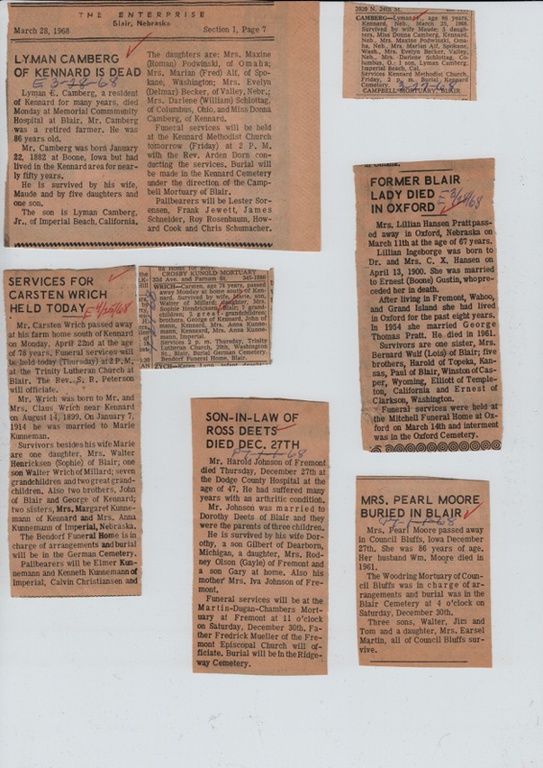 THE ENTERPRISE
Blair, Nebraska
March 28, 1968 Section 1, Page 7
LYMAN CAMBERG
OF KENNARD IS DEAD
E 3-28-68
Lyman E. Camberg, a resident
of Kennard for many years, died
Monday at Memorial Community
Hospital at Blair. Mr. Camberg
was a retired farmer. He was
86 years old.
Mr. Camberg was born January
22, 1882 at Boone, Iowa but had
lived in the Kennard area for near-
ly fifty years.
He is survived by his wife,
Maude and by five daughters and
one son.
The son is Lyman Camberg,
Jr., of Imperial Beach, California.
The daughters are: Mrs. Maxine
(Roman) Podwinski, of Omaha;
Mrs. Marian (Fred) Alf, of Spo-
kane, Washington; Mrs. Evelyn
(Delmar) Becker, of Valley, Nebr.;
Mrs. Darlene (William) Schlottag,
of Columbus, Ohio, and Miss Donna
Camberg, of Kennard.
Funeral services will be held
at the Kennard Methodist Church
tomorrow (Friday) at 2 P. M.
with the Rev. Arden Dorn con-
ducting the services. Burial will
be made in the Kennard Cemetery
under the direction of the Camp-
bell Mortuary of Blair.
Pallbearers will be Lester Sor-
ensen, Frank Jewett, James
Schneider, Roy Rosenbaum, How-
ard Cook and Chris Schumacher.
CAMBERG—Lyman, age 86 years,
Kennard, Neb., March 25, 1968.
Survived by wife Maude; 5 daugh-
ters, Miss Donna Camberg, Kennard,
Neb., Mrs. Maxine Podwinski, Oma-
ha, Neb., Mrs. Marian Alf, Spokane,
Wash., Mrs. Evelyn Becker, Valley,
Neb., Mrs. Darlene Schlottag, Co-
lumbus, O.; 1 son, Lyman Camberg,
Imperial Beach, Cal.
Services Kennard Methodist Church,
Friday, 2 p. m. Burial Kennard
Cemetery.
CAMPBELL MORTUARY, BLAIR
FORMER BLAIR
LADY DIED
IN OXFORD
Mrs. Lillian Hansen Pratt pass-
ed away in Oxford, Nebraska on
March 11th at the age of 67 years.
Lillian Ingeborge was born to
Dr. and Mrs. C. X. Hansen on
April 13, 1900. She was married
to Ernest (Boone) Gustin, who pre-
ceded her in death.
After living in Fremont, Wahoo,
and Grand Island she had lived
in Oxford for the past eight years.
In 1954 she married George
Thomas Pratt. He died in 1961.
Survivors are one sister, Mrs.
Bernard Wulf (Lois) of Blair; five
brothers, Harold of Topeka, Kan-
sas, Paul of Blair, Winston of Cas-
per, Wyoming, Elliott of Temple-
ton, California and Ernest of
Clarkson, Washington.
Funeral services were held at
the Mitchell Funeral Home at Ox-
ford on March 14th and interment
was in the Oxford Cemetery.
SERVICES FOR
CARSTEN WRICH
HELD TODAY
Mr. Carsten Wrich passed away
at his farm home south of Kennard
on Monday, April 22nd at the age
of 78 years. Funeral services will
be held today (Thursday) at 2 P. M.
at the Trinity Lutheran Church at
Blair. The Rev. S. R. Peterson
will officiate.
Mr. Wrich was born to Mr. and
Mrs. Claus Wrich near Kennard
on August 14, 1899. On January 7,
1914 he was married to Marie
Kunneman.
Survivors besides his wife Marie
are one daughter, Mrs. Walter
Henricksen (Sophie) of Blair; one
son Walter Wrich of Millard; seven
grandchildren and two great grand-
children. Also two brothers, John
of Blair and George of Kennard;
two sisters, Mrs. Margaret Kunne-
mann of Kennard and Mrs. Anna
Kunnemann of Imperial, Nebraska.
The Bendorf Funeral Home is in
charge of arrangements and burial
will be in the German Cemetery.
Pallbearers will be Elmer Kun-
nemann and Kenneth Kunnemann of
Imperial, Calvin Christiansen and
CROSBY KUNOLD MORTUARY
WRICH—Carsten, age 78 years, passed
away Monday at home south of Ken-
nard. Survived by wife, Marie, son,
Walter of Millard, daughter,
Sophie Hendricksen, Blair; 7 grand-
children; 2 great grandchildren;
brothers, George of Kennard, John of
Blair; sisters, Mrs. Anna Kunne-
mann, Kennard, Mrs. Anna Kunne-
mann, Imperial.
Services 2 p. m. Thursday, Trinity
Lutheran Church, 20th, Washington
St., Blair. Burial German Cemetery.
Bendorf Funeral Home, Blair.
SON-IN-LAW OF
ROSS DEETS
DIED DEC. 27TH
Mr. Harold Johnson of Fremont
died Thursday, December 27th at the
Dodge County Hospital at the
age of 47. He had suffered many
years with an arthritic condition.
Mr. Johnson was married to
Dorothy Deets of Blair and they
were the parents of three children.
He is survived by his wife Dor-
othy, a son Gilbert of Dearborn,
Michigan, a daughter, Mrs. Rod-
ney Olson (Gayle) of Fremont and
a son Gary at home. Also his
mother Mrs. Iva Johnson of Fre-
mont.
Funeral services will be at the
Martin-Dugan-Chambers Mort-
uary at Fremont at 11 o'clock
on Saturday, December 30th. Fa-
ther Fredrick Mueller of the Fre-
mont Episcopal Church will of-
ficiate. Burial will be in the Ridge-
way Cemetery.
MRS. PEARL MOORE
BURIED IN BLAIR
Mrs. Pearl Moore passed away
in Council Bluffs, Iowa December
27th. She was 86 years of age.
Her husband Wm. Moore died in
1961.
The Woodring Mortuary of Coun-
cil Bluffs was in charge of ar-
rangements and burial was in the
Blair Cemetery at 4 o'clock on
Saturday, December 30th.
Three sons, Walter, Jim and
Tom and a daughter, Mrs. Earsel
Martin, all of Council Bluffs sur-
vive.